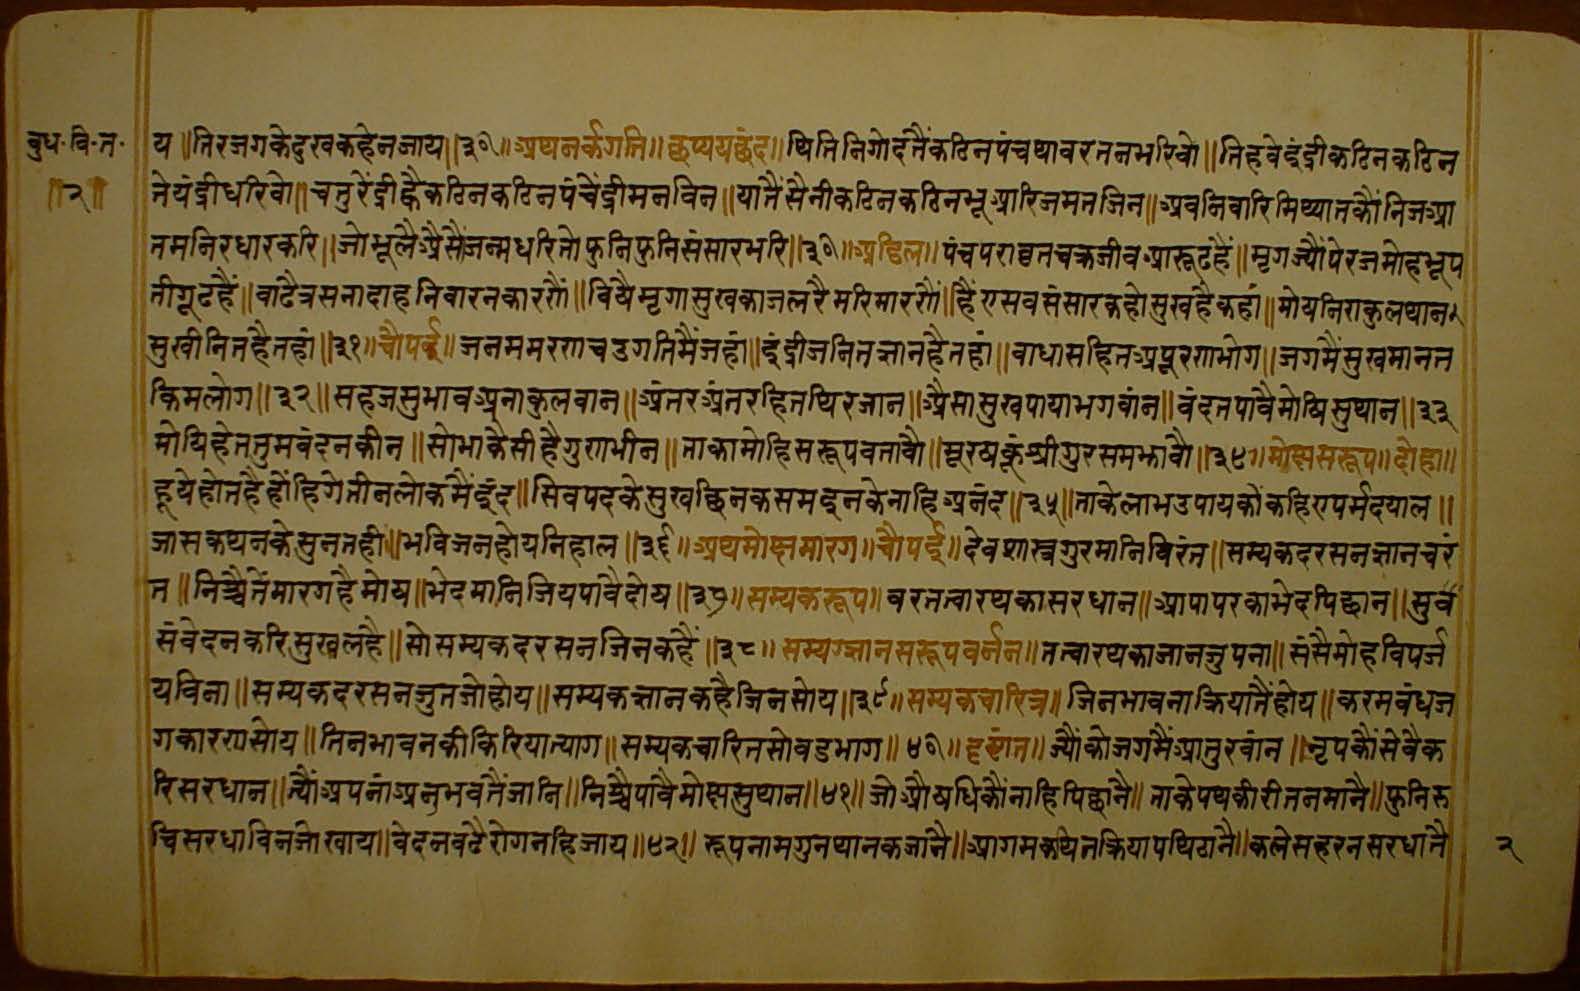 बुध·वि·त·
॥२॥
य॥तिरजगकेदुखकहेनजाय॥३०॥अथनर्कगति॥छप्पयछंद॥थितिनिगोदतैंकठिनपंचथावरतनभरिवो॥तिहवेइंद्रीकठिनकठिन
तेयंद्रीधरिवो॥चतुरेंद्रीह्वैकठिनकठिनपंचेंद्रीमनविन॥यातैंसैनीकठिनकठिनभूआरिजमतजिन॥अवनिवारिमिथ्यातकौंनिजआ
तमनिरधारकरि॥जोभूलैअैसैंजन्मधरितोफुनिफुनिसंसारभरि॥३०॥अडिल॥पंचपरावृतनचक्रजीवआरूढहैं॥मृगज्यौंपेरजमोहभूप
तीगूढहैं॥वाढैत्रसनादाहनिवारनकारणैं॥विषैमृगासुखकाजलरैमरिमारणैं॥हैंएसवसंसारकहोसुखहैकहां॥मोषनिराकुलथान
सुखीनितहैतहां॥३१॥चौपई॥जनममरणचउगतिमैंजहां॥इंद्रीजनितज्ञानहैतहां॥वाधासहितअपूरणभोग॥जगमैंसुखमानत
किमलोग॥३२॥सहजसुभावअनाकुलवान॥अंतरअंतरहितथिरजान॥अैसासुखपायाभगवांन॥वंदतपावैमोषिसुथान॥३३
मोषिहेततुमवंदनकीन॥सोभाकैसीहैगुणभीन॥ताकामोहिसरूपवतावौ॥मूरषकूंश्रीगुरसमझावौ॥३४॥मोक्षसरूप॥दोहा॥
हूयेहोतहैहोंहिगेतीनलोकमैंइंद॥सिवपदकेसुखछिनकसमइनकेनाहिअनंद॥३५॥ताकेलाभउपायकौंकहिएपर्मदयाल॥
जासकथनकेसुनतही॥भविजनहोयनिहाल॥३६॥अथमोक्षमारग॥चौपई॥देवशास्त्रगुरमानिविरंत॥सम्यकदरसनज्ञानचरं
त॥निश्चैतैंमारगहैमोष॥भेदमानिजियपावैदोय॥३७॥सम्यकरूप॥वरतत्वारथकासरधान॥आपापरकाभेदपिछान॥सुव
संवेदनकरिसुखलहै॥सोसम्यकदरसनजिनकहैं॥३८॥सम्यग्ज्ञानसरूपवर्नन॥तत्वारथकाजानजुपना॥संसैमोहविपर्ज
यविना॥सम्यकदरसनजुतजोहोय॥सम्यकज्ञानकहैजिनसोय॥३९॥सम्यकचारित्र॥जिनभावनाक्रियातैंहोय॥करमवंधज
गकारणसोय॥तिनभावनकीकिरियात्याग॥सम्यकचारितसोवडभाग॥४०॥दृष्टांत॥ज्यौंकोजगमैंआतुरवांन॥नृपकौंसेवैक
रिसरधान॥त्यौंअपनांअनभवतैंजानि॥निश्चैपावैमोक्षसुथान॥४१॥जोऔषधिकौंनाहिपिछानै॥ताकेपथकीरीतनमानै॥फुनिरु
चिसरधाविनजोखाय॥वेदनवढैरोगनहिजाय॥४२॥रूपनामगुनथानकजांनै॥आगमकथितक्रियापथिठानै॥कलेसहरनसरधानै
२